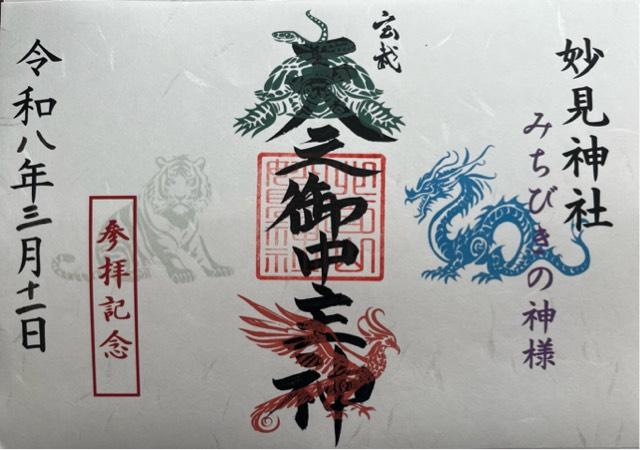 妙見神社
みちびきの神様
玄武
天之御中主神
参拝記念
令和八年三月十一日